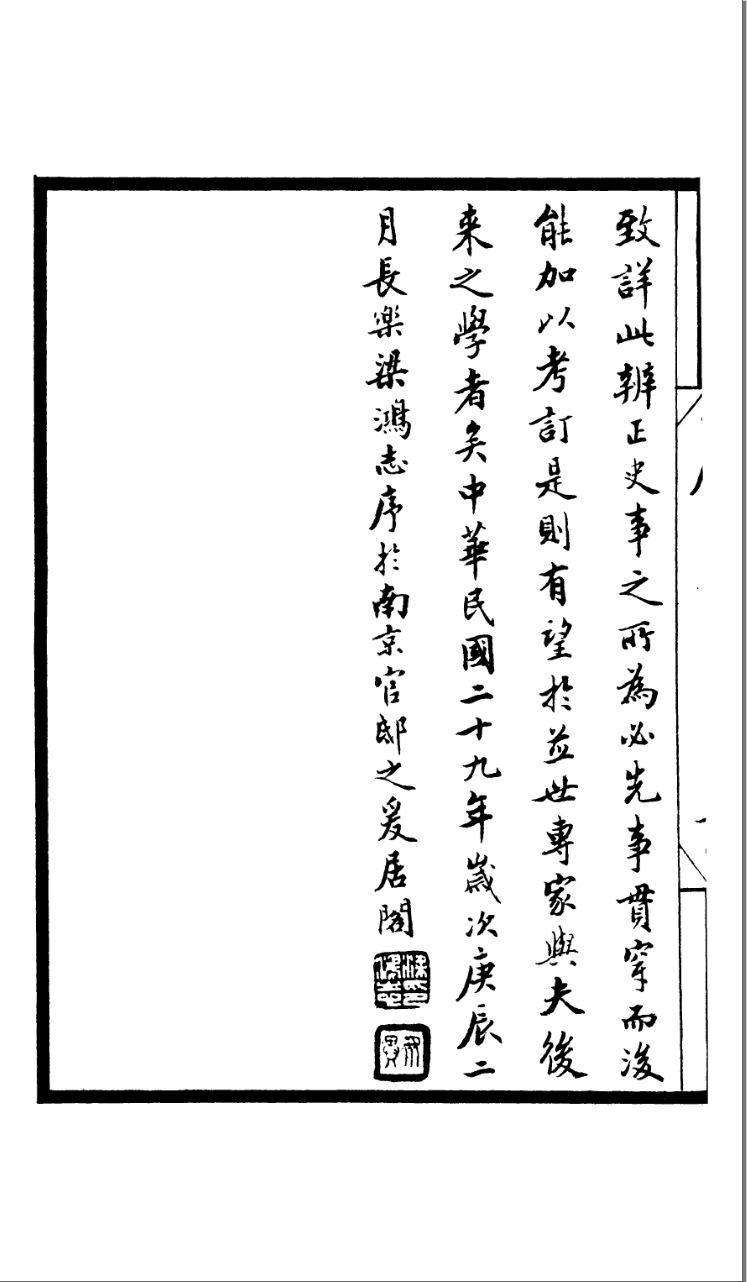 致詳此辨正史事之所為必先事貫穿而後
能加以考訂是則有望於並世專家與夫後
来之學者矣中華民國二十九年歲次庚辰二
月長樂梁鴻志序於南京官邸之爰居閣
梁鴻志印
眾異